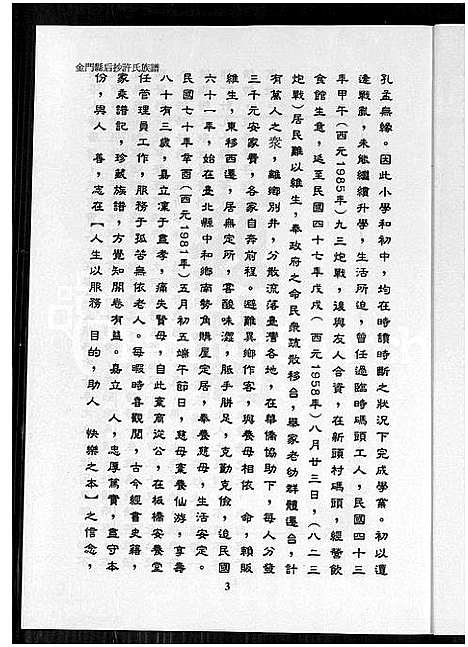 金門縣后抄許氏族譜
孔孟無緣。因此小學和初中，均在時讀時斷之狀況下完成學業。初以遭
逢戰亂，未能繼續升學，生活所迫，曾任過臨時碼頭工人，民國四十三
年甲午（西元1985年）九三炮戰，復與友人合資，在新頭村碼頭，經營飲
食館生意，延至民國四十七年戊戌（西元1958年）八月廿三日，（八二三
炮戰）居民難以維生，奉政府之命民眾疏散移台，舉家老幼群體遷台，計
有萬人之眾，離鄉別井，分散流落臺灣各地，在華僑協助下，每人分發
三千元安家費，各家自奔前程。避難異鄉作客，與養母相依　命，賴販
維生，東移西遷，居無定所，害酸味澀，胝手胼足，克勤克儉，迨民國
六十一年，始在臺北縣中和鄉南勢角購屋定居，奉養慈母，生活安定。
民國七十年辛酉（西元1981年）五月初五端午節日，慈母棄養仙游，享壽
八十有三歲，嘉立濡子盡孝，痛失賢母，自此棄商從公，在板橋安養堂
任管理員工作，服務于孤苦無依老人。每暇時喜觀閱，古今經書史籍，
家乘譜記，珍藏族譜，方覺知開卷有益。嘉立　人，忠厚篤實，盡守本
份，與人　善，志在【人生以服務　目的，助人　快樂之本】之信念，
3